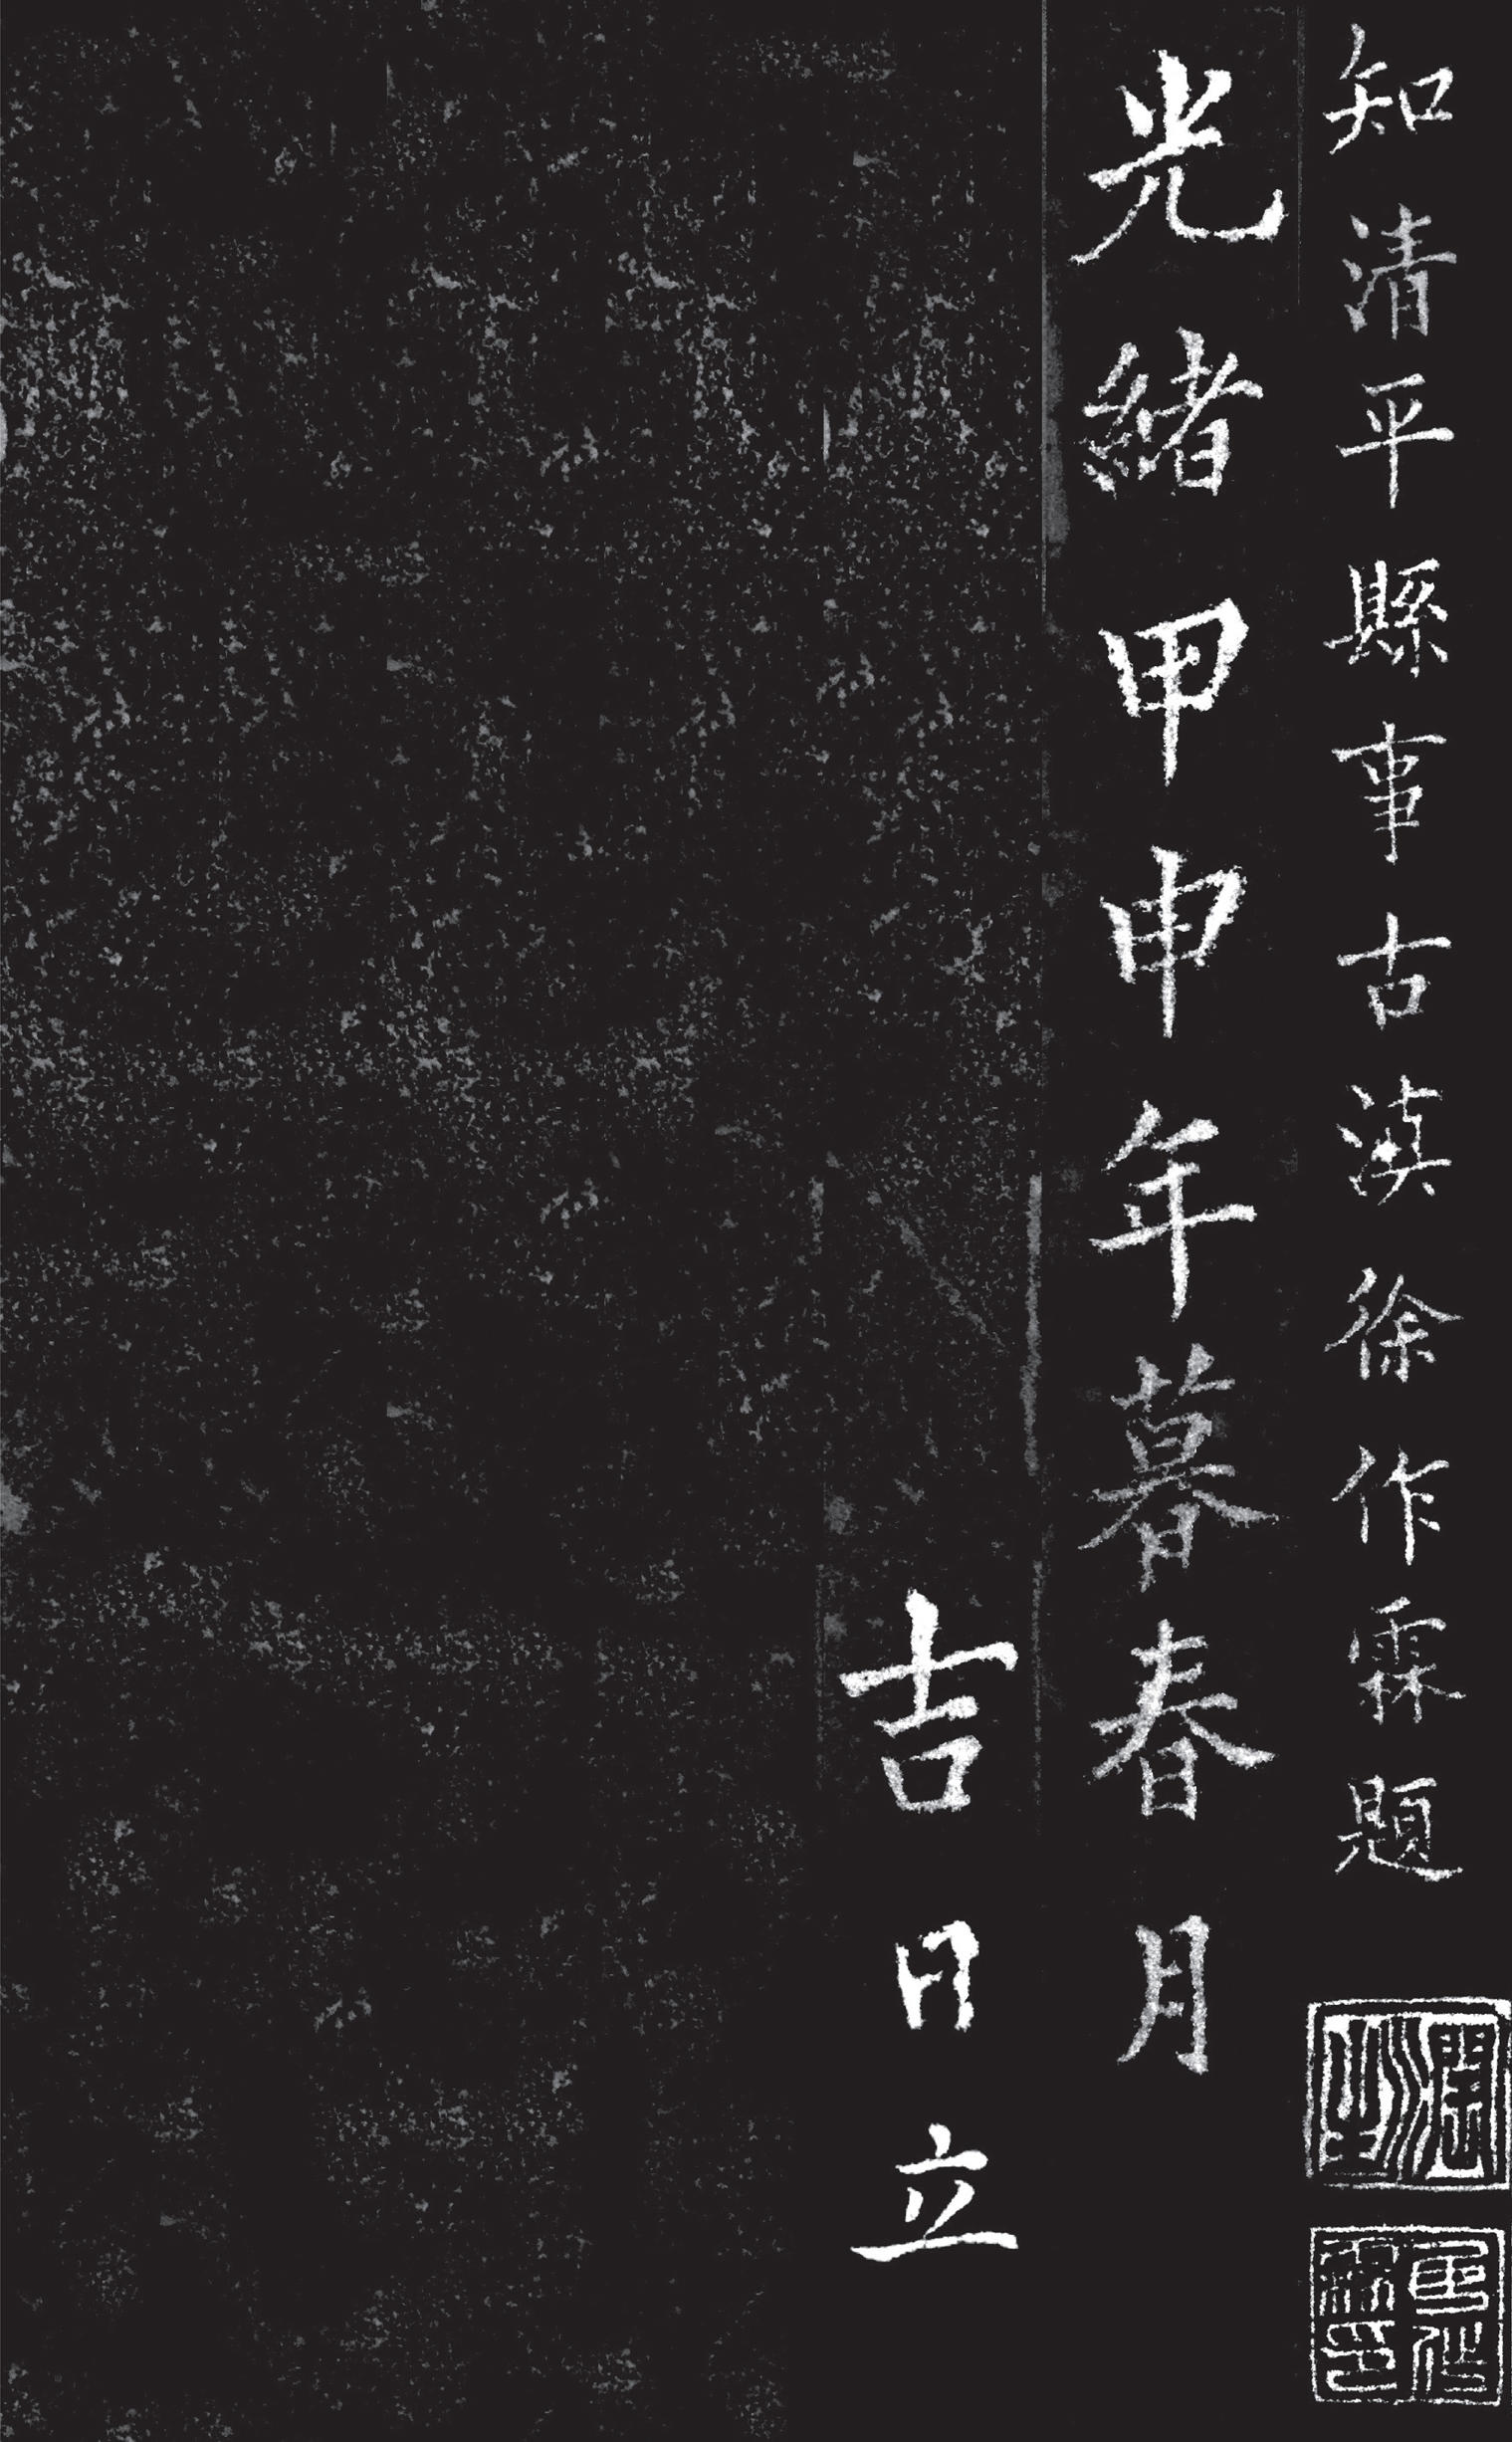 知清平縣事古滇徐作霖題
光緒甲申年暮春月
吉日立